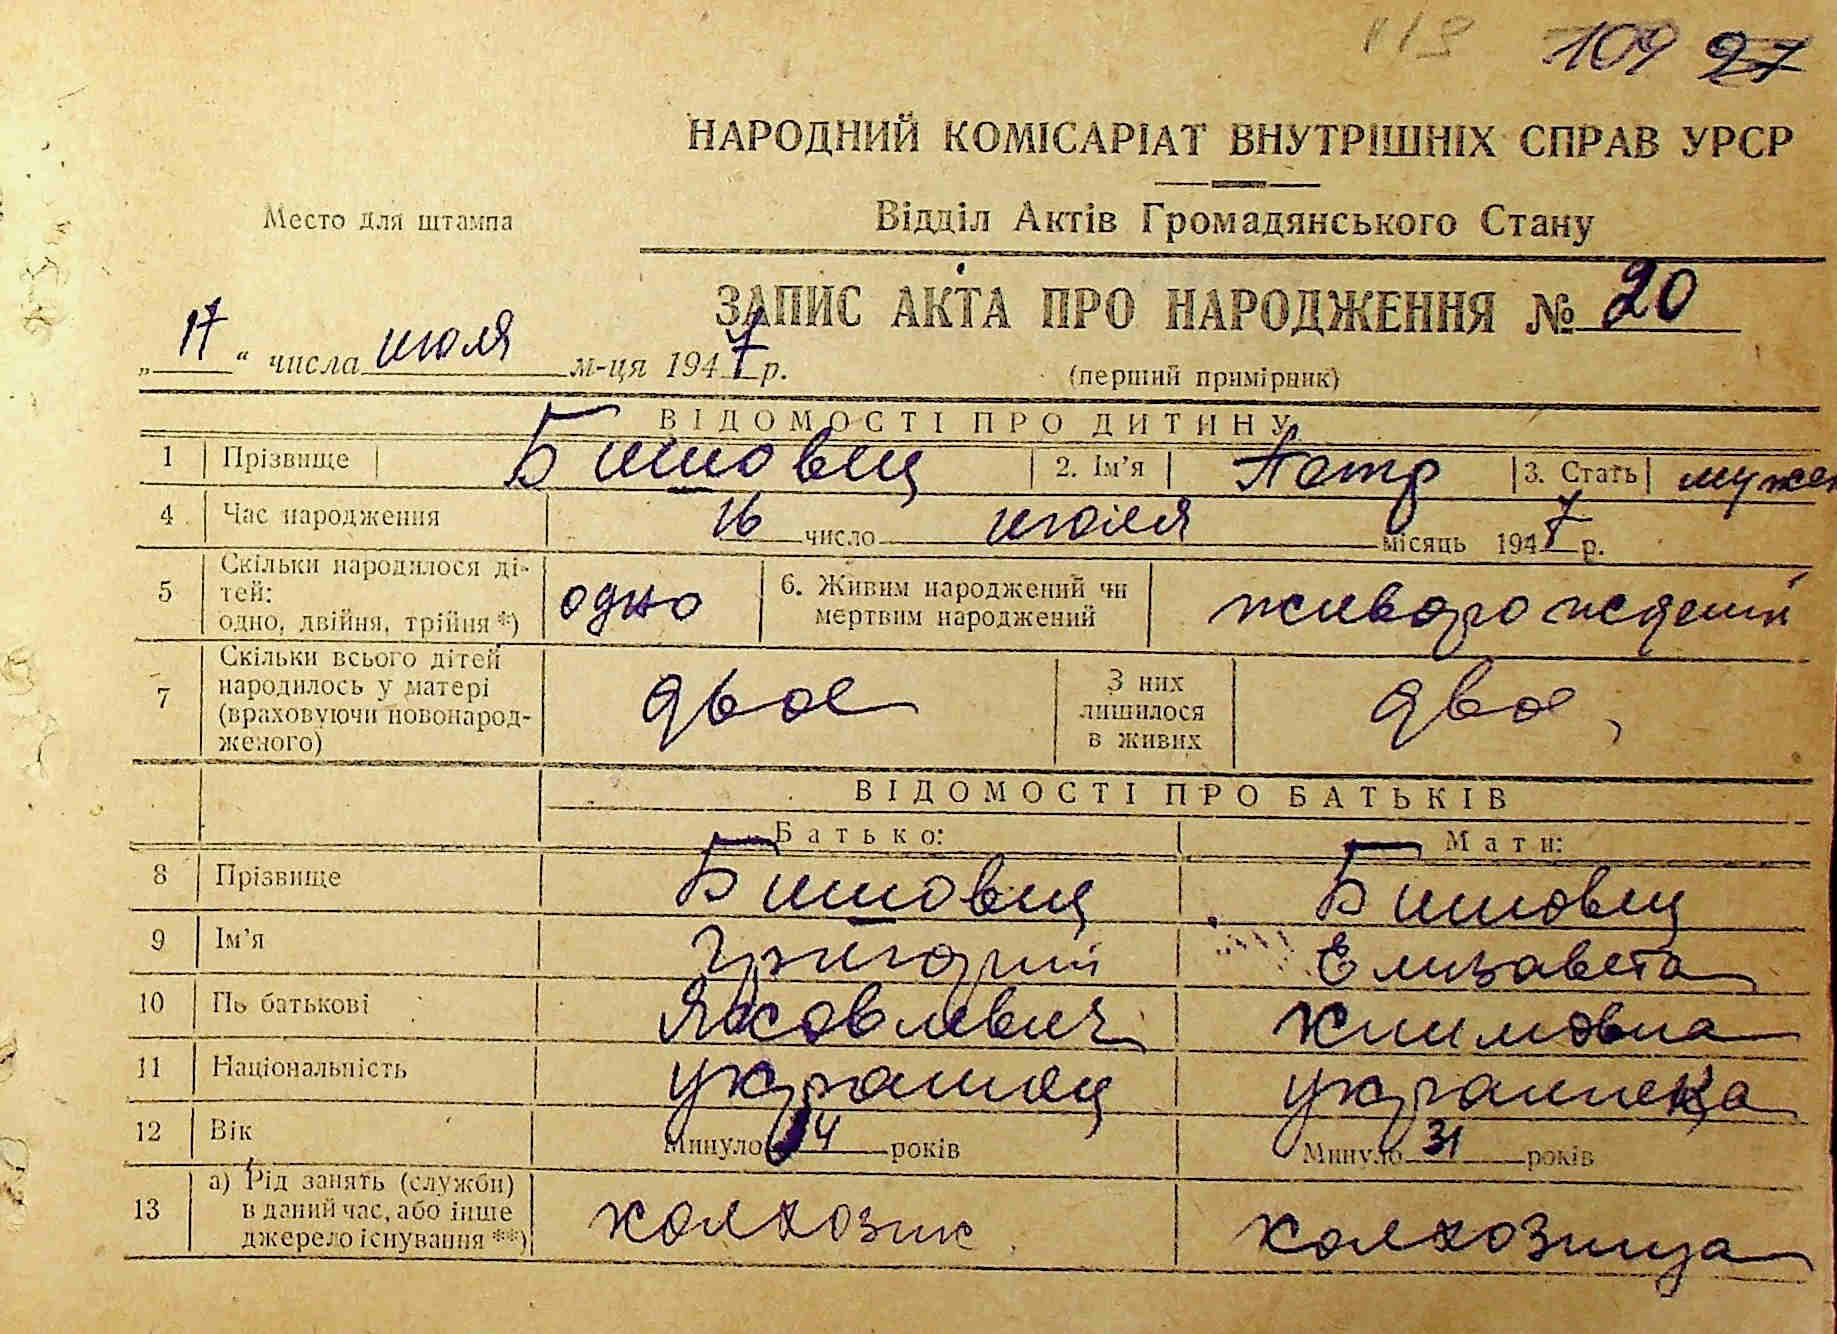 109 27
НАРОДНИЙ КОМІСАРІАТ ВНУТРІШНІХ СПРАВ УРСР
Место для штампа
Відділ Актів Громадянського Стану
ЗАПИС АКТА ПРО НАРОДЖЕННЯ № 20
„ 17 “ числа июля м-ця 1947 р.
(перший примірник)
ВІДОМОСТІ ПРО ДИТИНУ
1 Прізвище Бишовец 2. Ім’я Петр 3. Стать мужск
4 Час народження 16 число июля місяць 1947 р.
5 Скільки народилося ді-
тей:
одно, двійня, трійня *) одно 6. Живим народжений чи
мертвим народжений живорожденый
7 Скільки всього дітей
народилось у матері
(враховуючи новонарод-
женого) двое З них
лишилося
в живих двое
ВІДОМОСТІ ПРО БАТЬКІВ
Батько: Мати:
8 Прізвище Бишовец Бишовец
9 Ім’я Григорий Елизавета
10 По батькові Яковлевич Климовна
11 Національність украинец украинка
12 Вік Минуло 34 років Минуло 31 років
13 а) Рід занять (служби)
в даний час, або інше
джерело існування **) колхозник колхозница